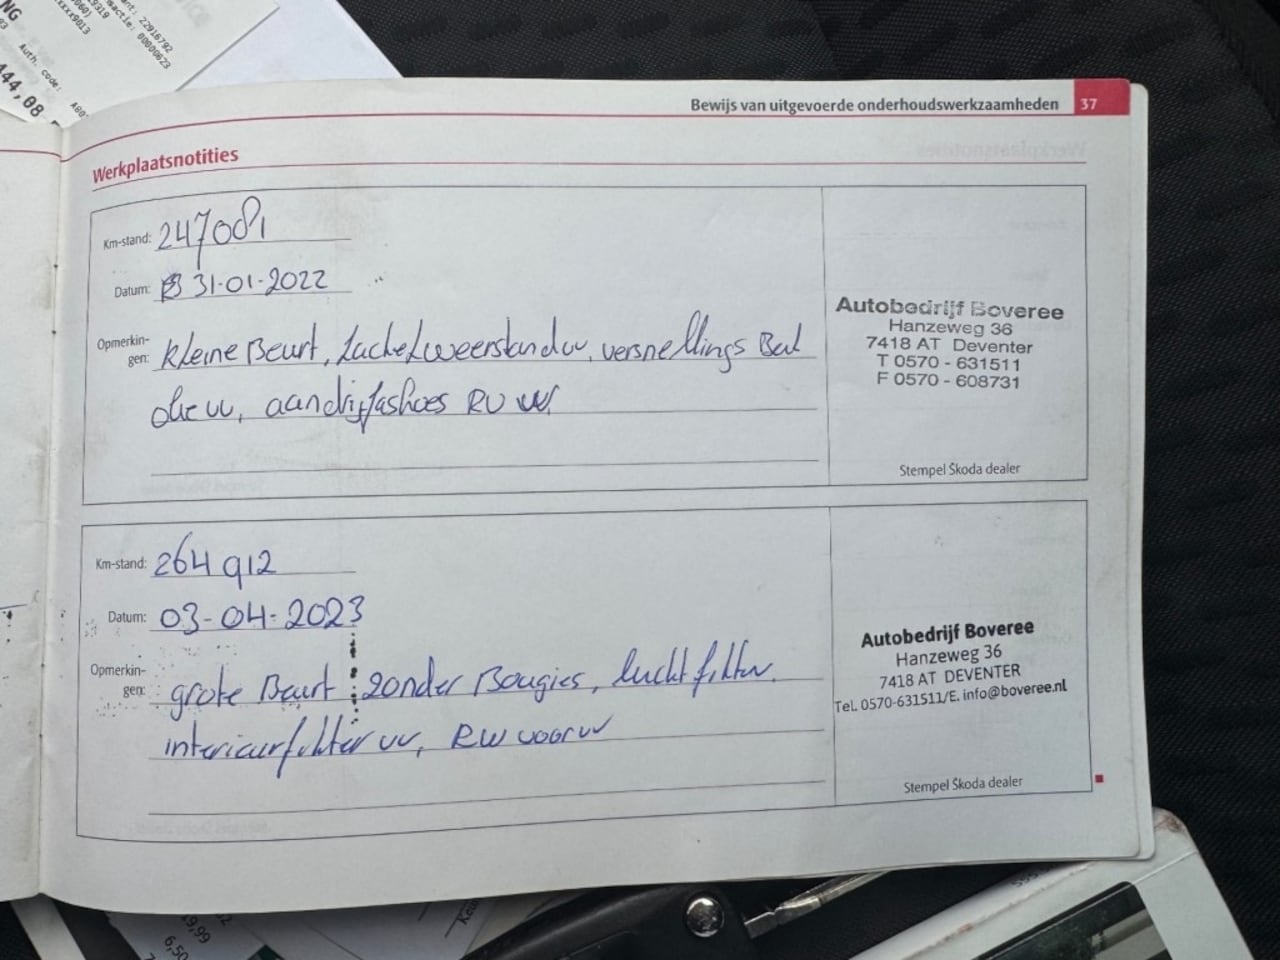 22916792
00000623
Auth. code:
144,08
Bewijs van uitgevoerde onderhoudswerkzaamheden 37
Werkplaatsnotities
Km-stand: 247081
Datum: 31-01-2022
Opmerkin-
gen: kleine Beurt, kachelweerstand uv, versnellings Bak
olie vv, aandrijfashoes RV vv
Autobedrijf Boveree
Hanzeweg 36
7418 AT Deventer
T 0570 - 631511
F 0570 - 608731
Stempel Škoda dealer
Km-stand: 264912
Datum: 03-04-2023
Opmerkin-
gen: grote Beurt zonder Bougies, luchtfilter,
interieurfilter vv, RW voor vv
Autobedrijf Boveree
Hanzeweg 36
7418 AT DEVENTER
Tel. 0570-631511/E. info@boveree.nl
Stempel Škoda dealer
6,50